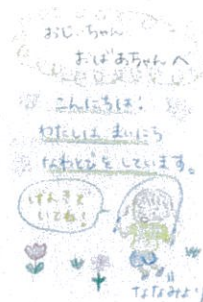 おじいちゃん
おばあちゃんへ
こんにちは!
わたしは まいにち
なわとびを しています。
げんきで
いてね!
ななみより